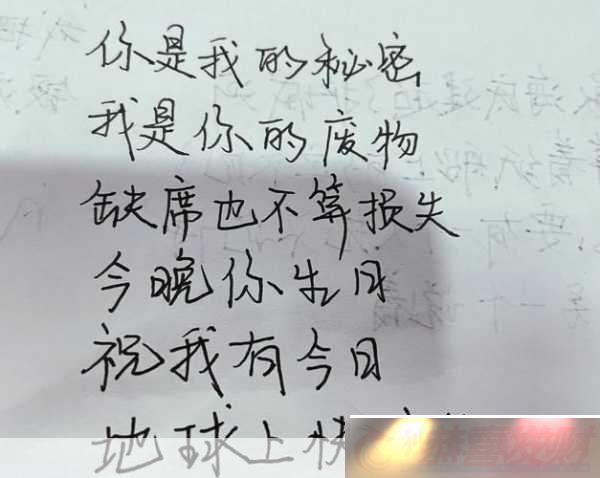 你是我的秘密
我是你的废物
缺席也不算损失
今晚你生日
祝我有今日
地球上快